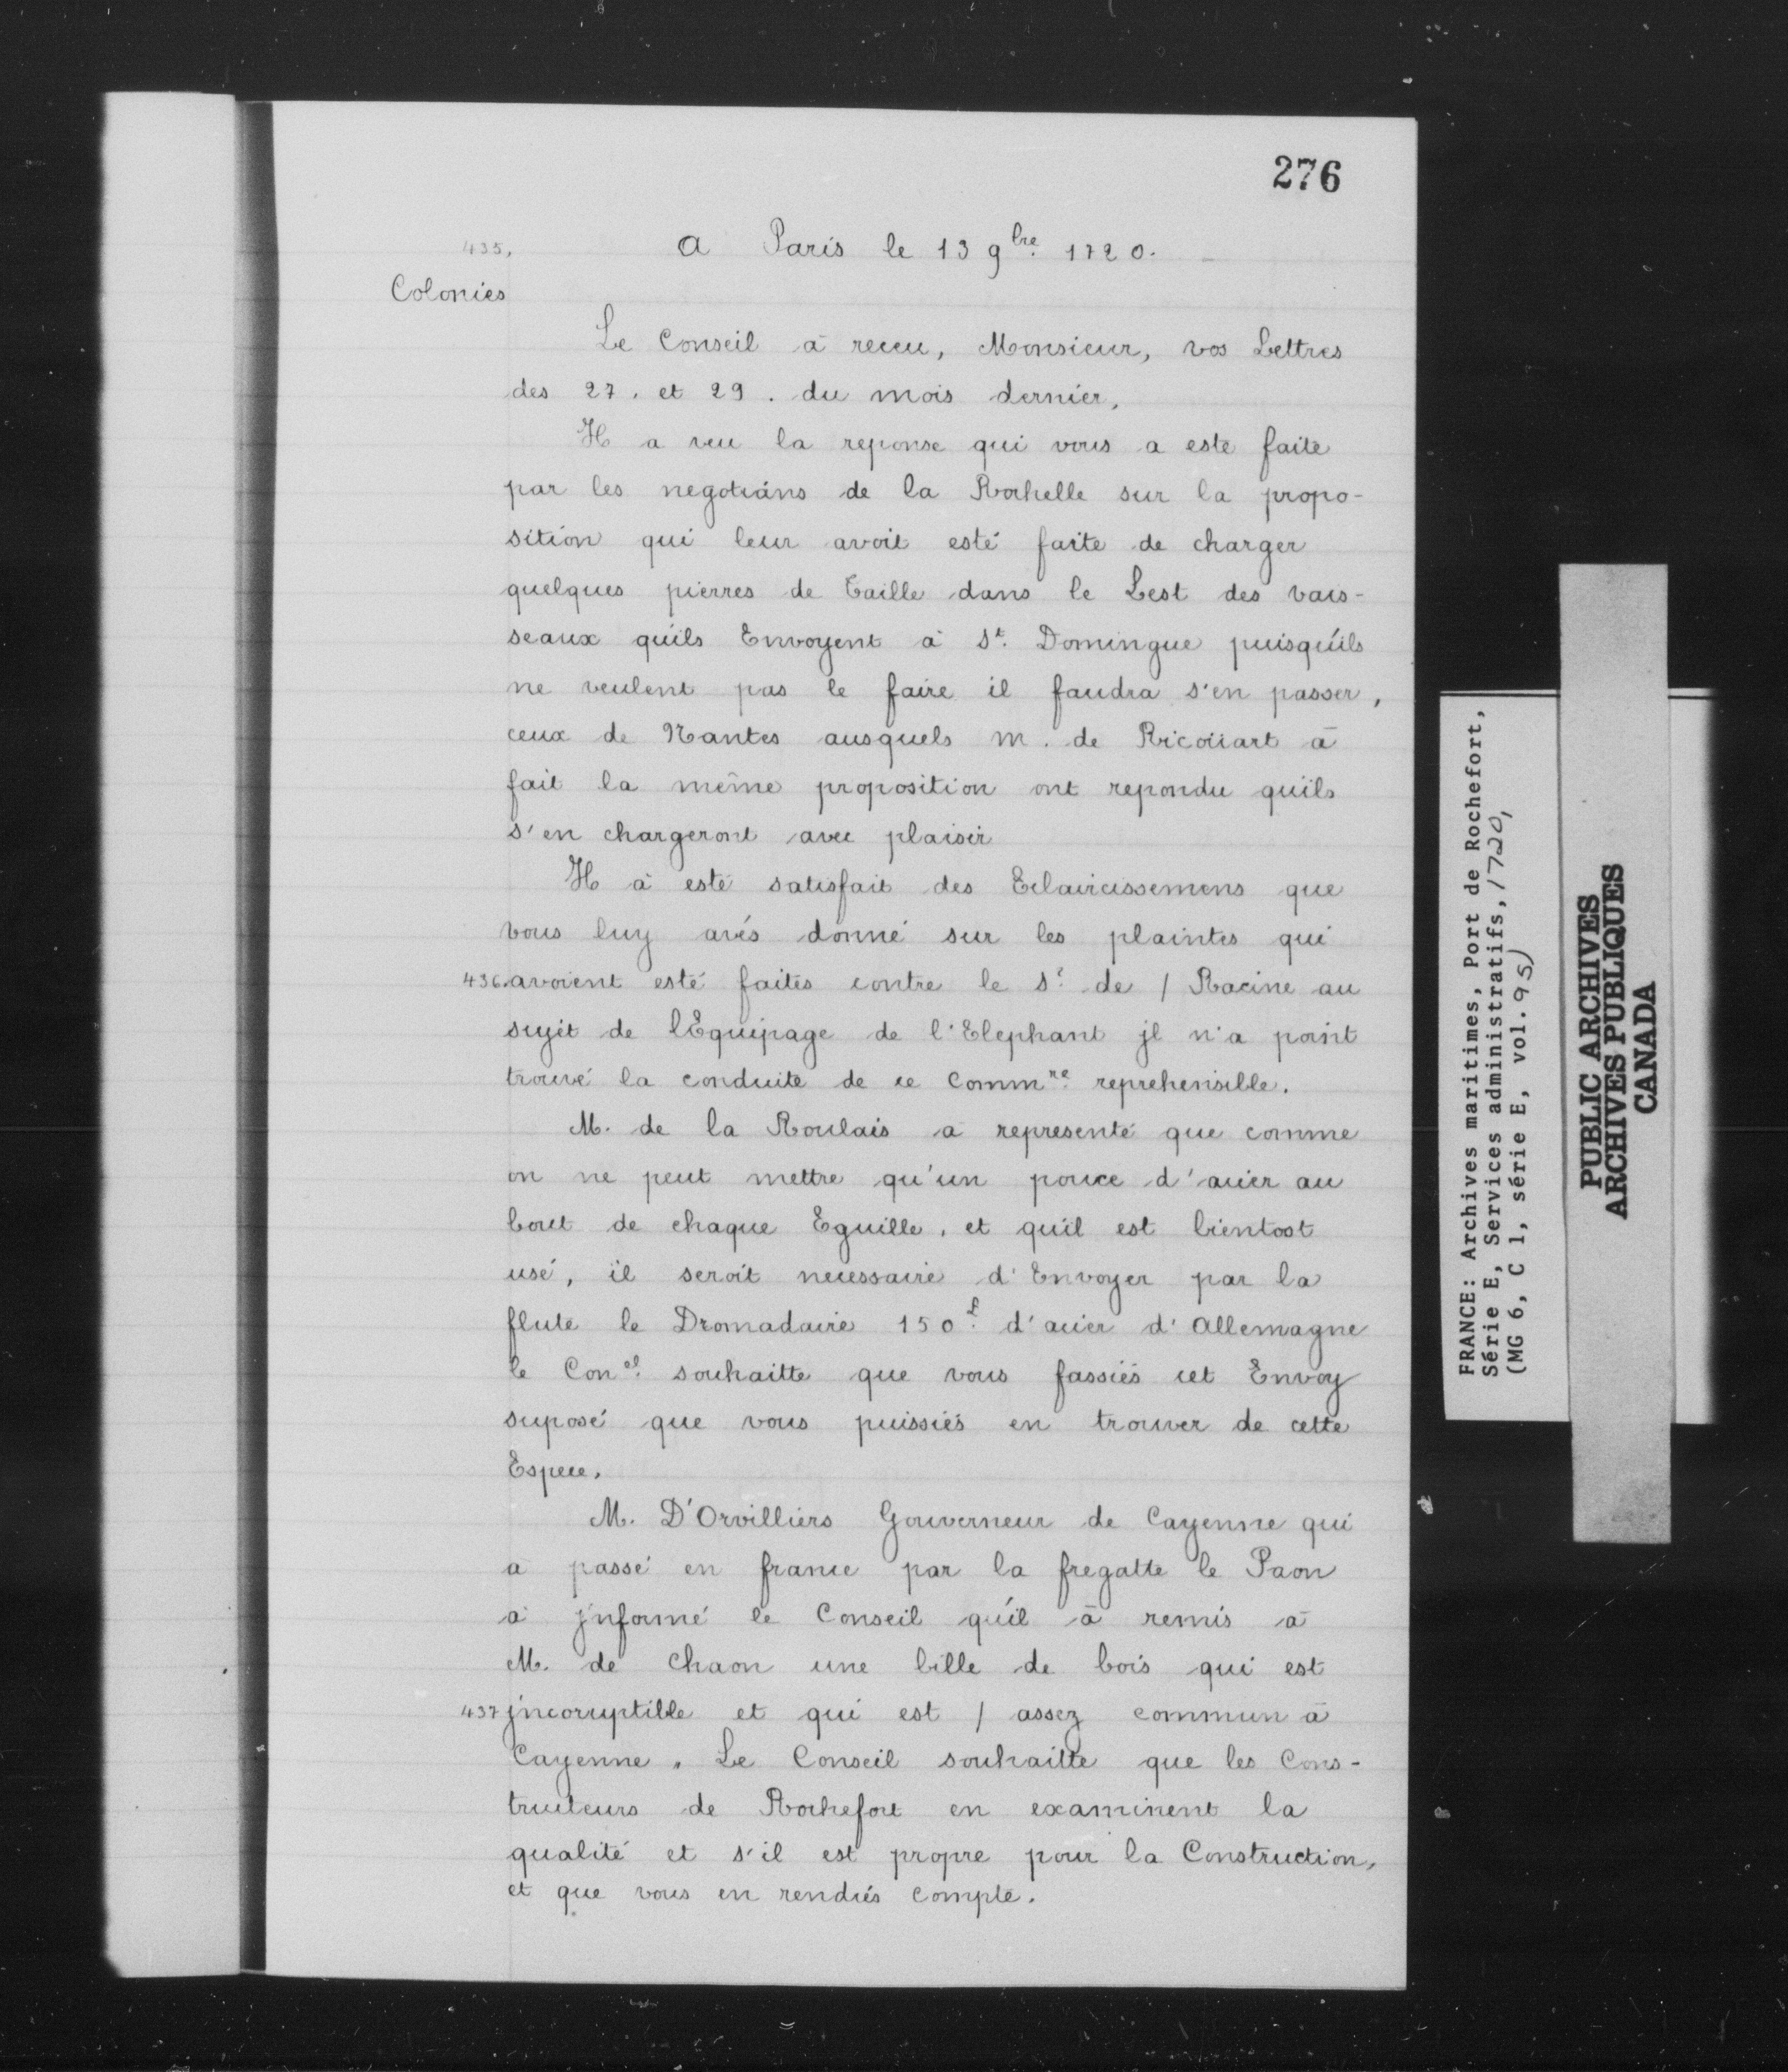 276
435.
A Paris le 13 9bre. 1720.
Colonies
Le Conseil à receu, Monsieur, vos Lettres
des 27. et 29. du mois dernier.
Il a veu la reponse qui vous a este faite
par les negotians de la Rochelle sur la propo-
sition qui leur avoit esté faite de charger
quelques pierres de taille dans le Lest des vais-
seaux qu'ils Envoyent à St. Domingue puisqu'ils
ne veulent pas le faire il faudra s'en passer,
ceux de Nantes ausquels M. de Ricoüart à
fait la même proposition ont repondu qu'ils
s'en chargeront avec plaisir
Il à esté satisfait des Eclaircissemens que
vous luy avés donné sur les plaintes qui
436. avoient esté faites contre le Sr. de / Racine au
sujet de l'Equipage de l'Elephant jl n'a point
trouvé la conduite de ce Commre. reprehensible.
M. de la Roulais a representé que comme
on ne peut mettre qu'un pouce d'acier au
bout de chaque Eguille, et qu'il est bientost
usé, il seroit necessaire d'Envoyer par la
flute le Dromadaire 150 £. d'acier d'Allemagne
le Conel. souhaitte que vous fassiés cet Envoy
suposé que vous puissiés en trouver de cette
Espece.
M. D'Orvilliers Gouverneur de Cayenne qui
a passé en france par la fregatte le Paon
a jnformé le Conseil qu'il à remis à
M. de Chaon une bille de bois qui est
437 jncoruptible et qui est / assez commun à
Cayenne. Le Conseil souhaitte que les Cons-
tructeurs de Rochefort en examinent la
qualité et s'il est propre pour la Construction,
et que vous en rendiés compte.
FRANCE: Archives maritimes, Port de Rochefort,
Série E, Services administratifs, 1720,
(MG 6, C 1, série E, vol. 95)
PUBLIC ARCHIVES
ARCHIVES PUBLIQUES
CANADA